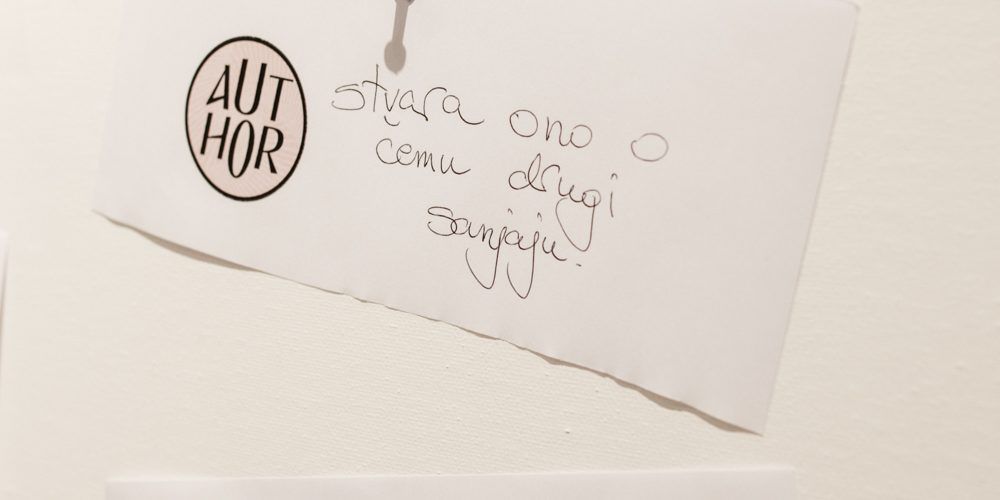 AUT
HOR
stvara ono o
čemu drugi
sanjaju.